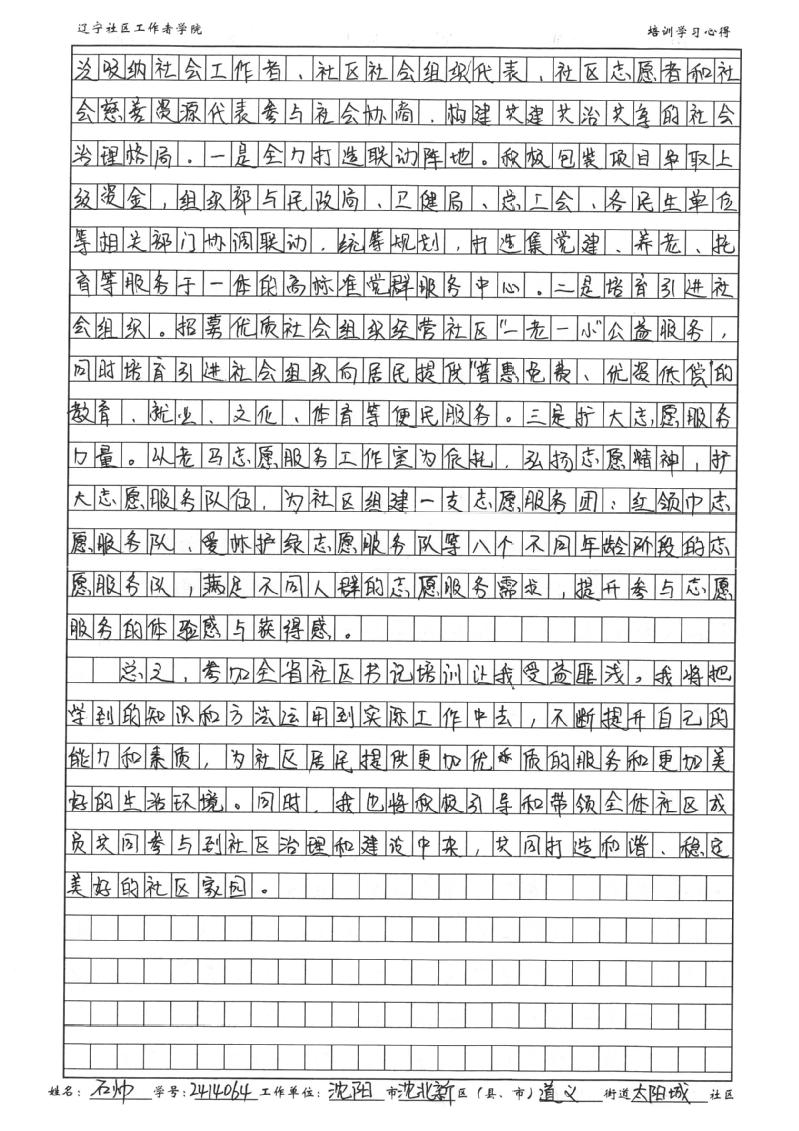 辽宁社区工作者学院 培训学习心得
治吸纳社会工作者、社区社会组织代表、社区志愿者和社
会慈善资源代表参与社会协商,构建共建共治共享的社会
治理格局。一是全力打造联动阵地。积极包装项目争取上
级资金,组织部与民政局、卫健局、总工会、各民生单位
等相关部门协调联动,统筹规划,打造集党建、养老、托
育等服务于一体的高标准党群服务中心。二是培育引进社
会组织。招募优质社会组织经营社区“一老一小”公益服务,
同时培育引进社会组织向居民提供“普惠免费、优提低偿”的
教育、就业、文化、体育等便民服务。三是扩大志愿服务
力量。以老马志愿服务工作室为依托,弘扬志愿精神,扩
大志愿服务队伍,为社区组建一支志愿服务团:红领巾志
愿服务队、爱林护绿志愿服务队等八个不同年龄阶段的志
愿服务队,满足不同人群的志愿服务需求,提升参与志愿
服务的体验感与获得感。
总之,参加全省社区书记培训让我受益匪浅。我将把
学到的知识和方法运用到实际工作中去,不断提升自己的
能力和素质,为社区居民提供更加优质的服务和更加美
好的生活环境。同时,我也将积极引导和带领全体社区成
员共同参与到社区治理和建设中来,共同打造和谐、稳定
美好的社区家园。
姓名:石帅 学号:2414064 工作单位:沈阳 市沈北新区(县、市)道义 街道太阳城 社区